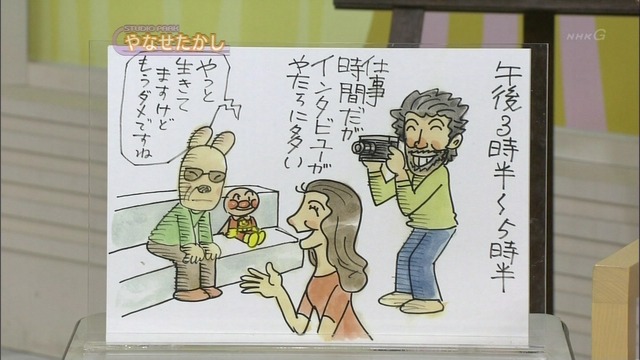 STUDIO PARK
やなせたかし
NHK G
午後3時半～5時半
仕事
時間だが
インタビューが
やたらに多い
やっと
生きて
ますけど
もうダメですね